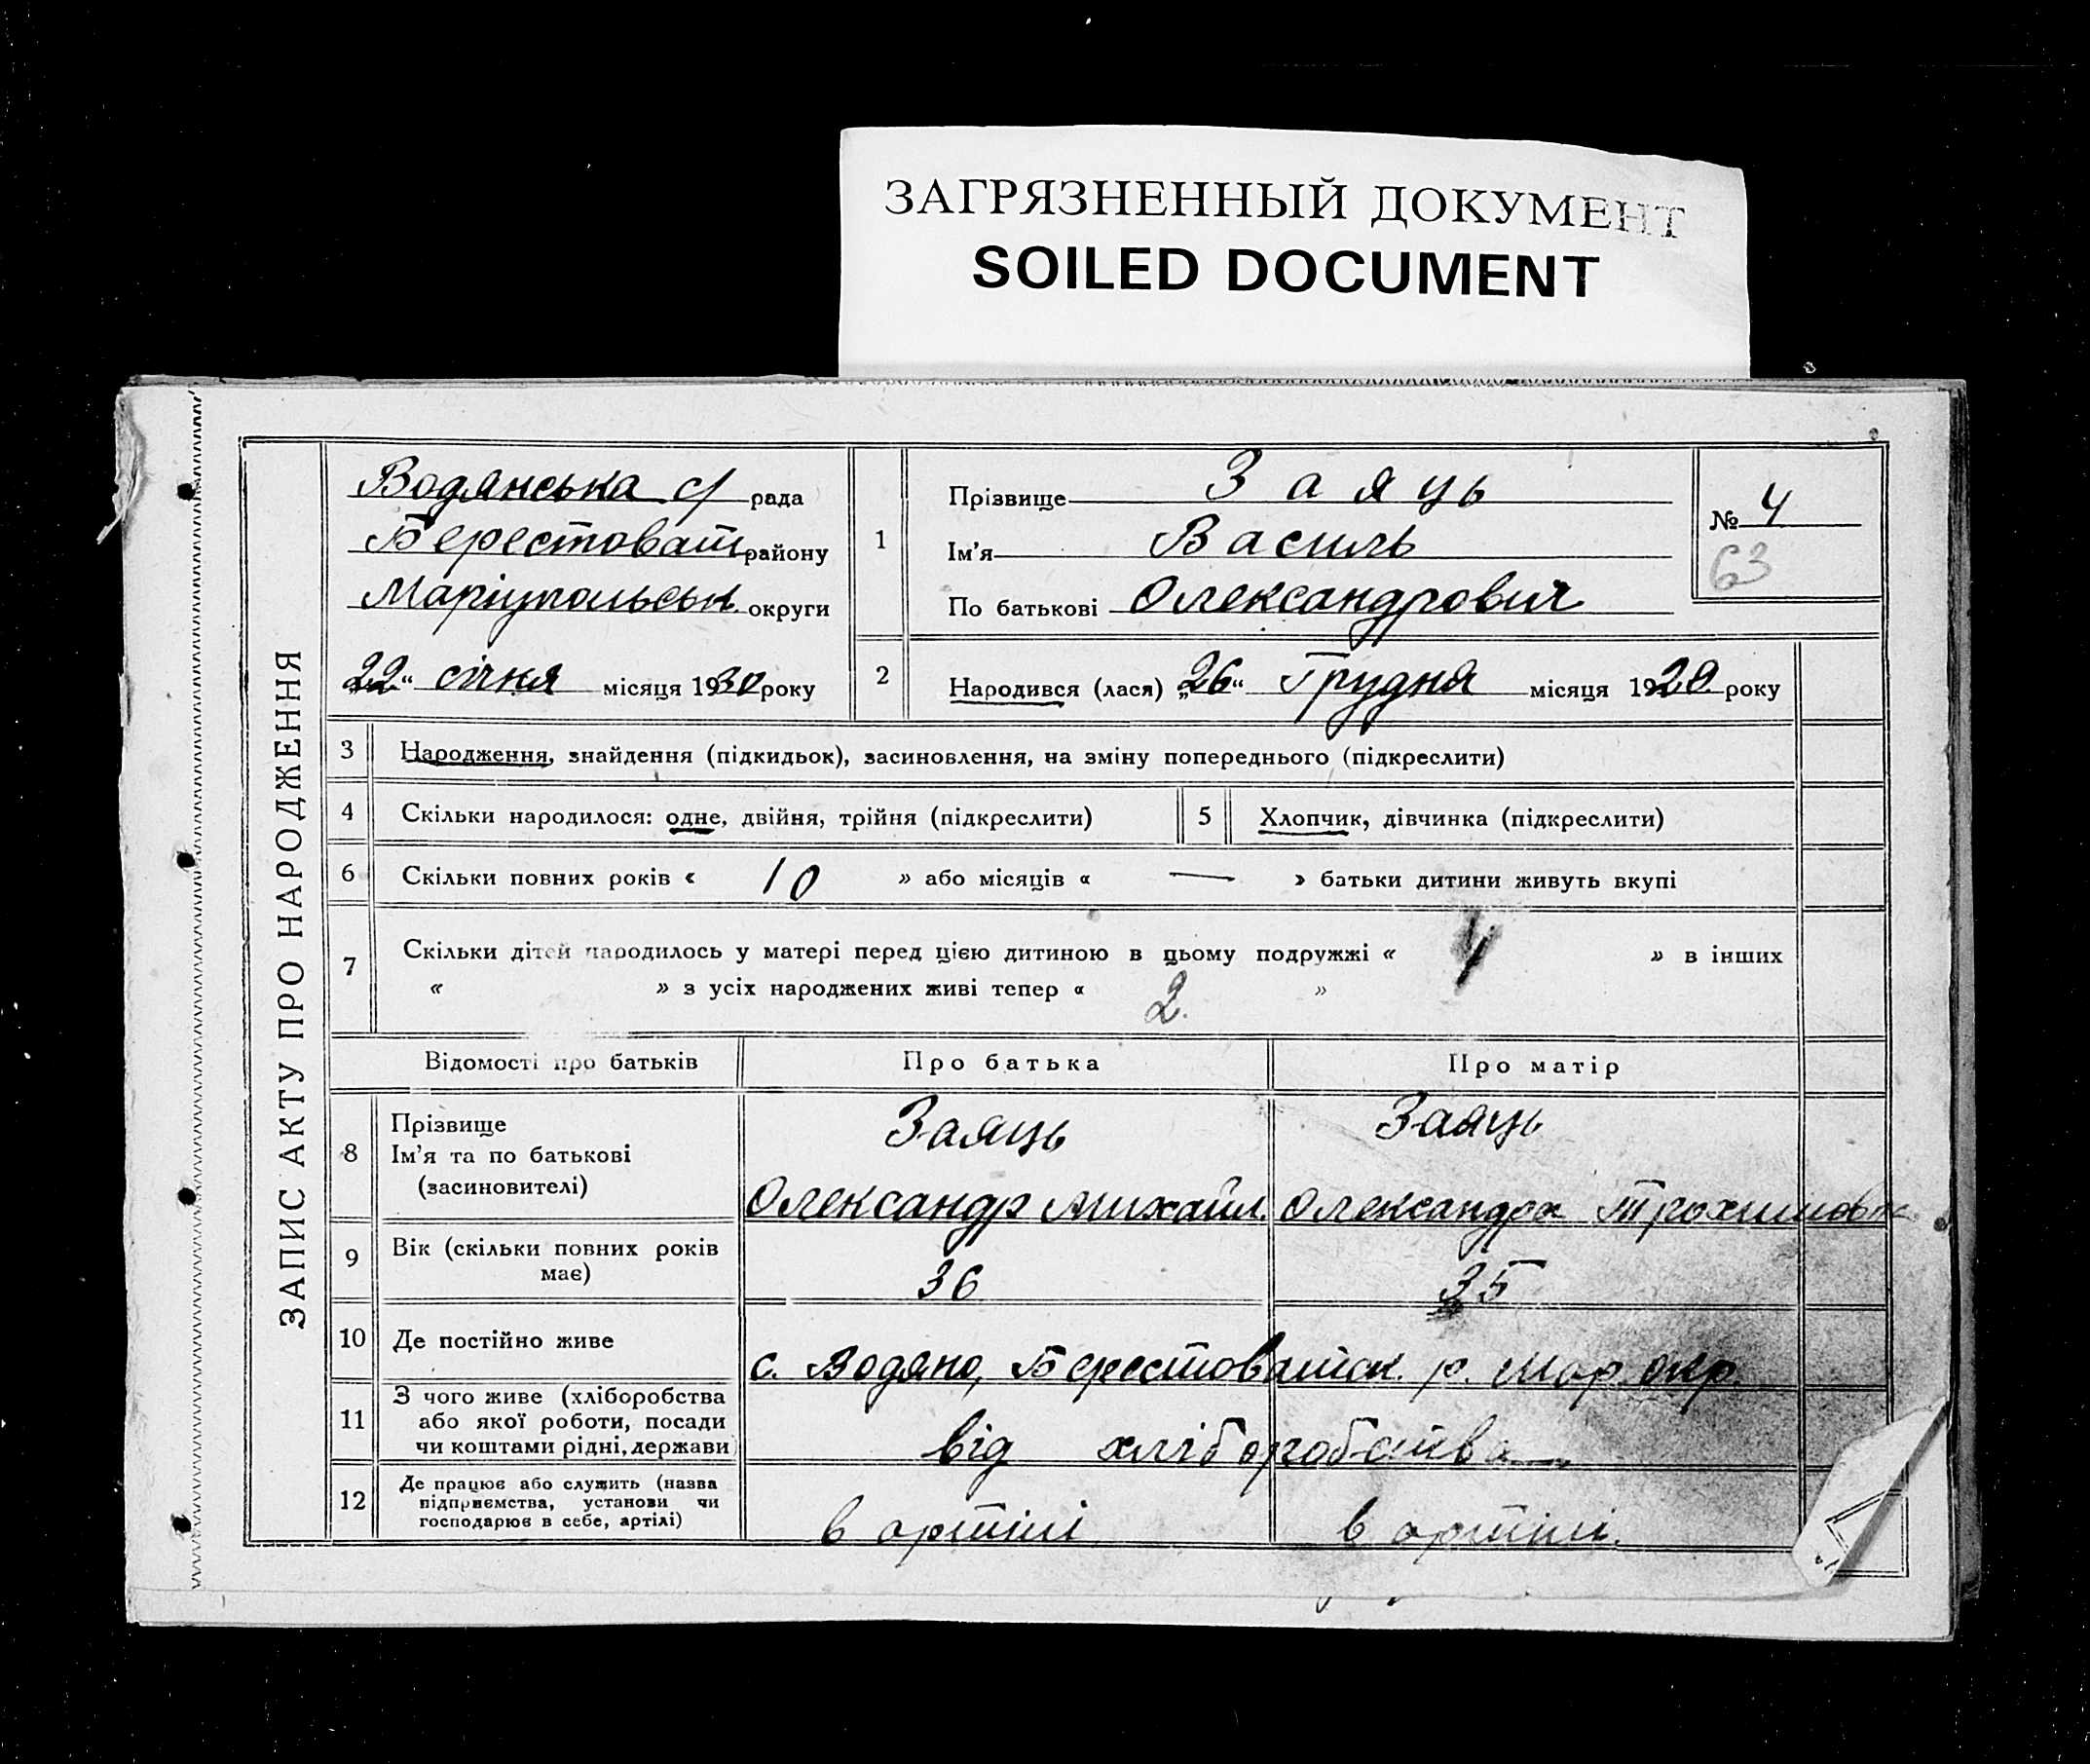 ЗАГРЯЗНЕННЫЙ ДОКУМЕНТ
SOILED DOCUMENT
ЗАПИС АКТУ ПРО НАРОДЖЕННЯ
Водянська с/ рада
Берестоват району
Маріупольськ округи
22 " січня місяця 1930 року
1
Прізвище Заяць
Ім'я Василь
По батькові Олександрович
№ 4
63
2 Народився (лася) „26" Грудня місяця 1929 року
3 Народження, знайдення (підкидьок), засиновлення, на зміну попереднього (підкреслити)
4 Скільки народилося: одне, двійня, трійня (підкреслити) 5 Хлопчик, дівчинка (підкреслити)
6 Скільки повних років « 10 » або місяців « — » батьки дитини живуть вкупі
7 Скільки дітей народилось у матері перед цією дитиною в цьому подружжі « 4 » в інших
« » з усіх народжених живі тепер « 2. »
Відомості про батьків Про батька Про матір
8 Прізвище
Ім'я та по батькові
(засиновителі)
Заяць
Олександр Михайл.
Заяць
Олександра Трохимовна
9 Вік (скільки повних років
має)
36 35
10 Де постійно живе с. Водяно, Берестоватск. р. Мар. окр.
11 З чого живе (хліборобства
або якої роботи, посади
чи коштами рідні, держави
від хліборобства
12 Де працює або служить (назва
підприємства, установи чи
господарює в себе, артілі)
в артілі в артілі.